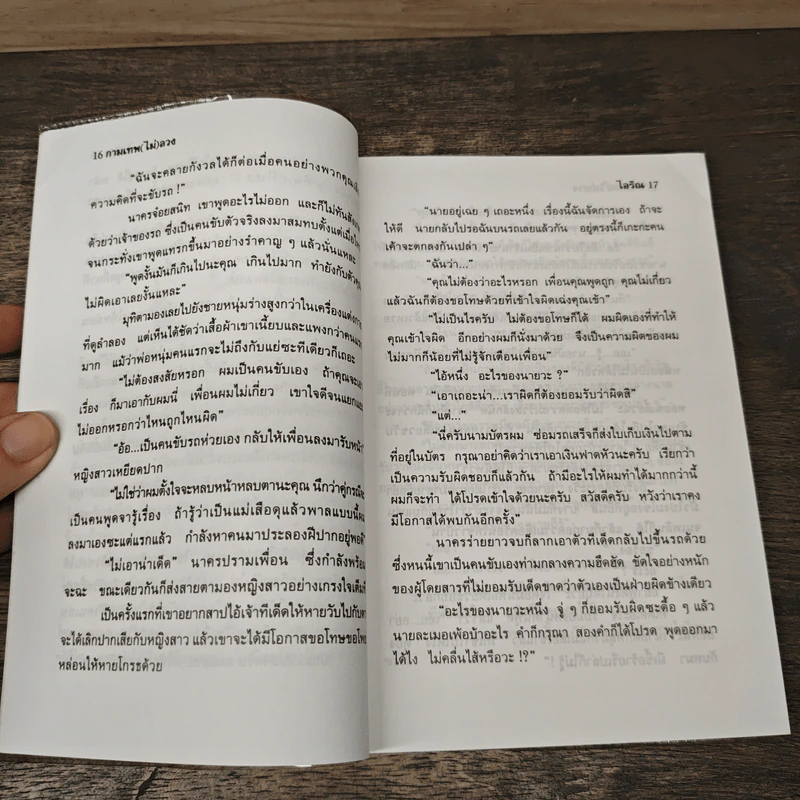 16 กามเทพ(ไม่)ลวง
“ฉันจะคลายกังวลได้ก็ต่อเมื่อคนอย่างพวกคุณเลิก
ความคิดที่จะขับรถ !”
นาครจ๋อยสนิท เขาพูดอะไรไม่ออก และก็ไม่ทัน
ด้วยว่าเจ้าของรถ ซึ่งเป็นคนขับตัวจริงลงมาสมทบตั้งแต่เมื่อ
จนกระทั่งเขาพูดแทรกขึ้นมาอย่างรำคาญ ๆ แล้วนั่นแหละ
“พูดงั้นมันก็เกินไปนะคุณ เกินไปมาก ทำยังกับตัว
ไม่ผิดเอาเลยงั้นแหละ”
มุทิตามองเลยไปยังชายหนุ่มร่างสูงกว่าในเครื่องแต่งกาย
ที่ดูลำลอง แต่เห็นได้ชัดว่าเสื้อผ้าเขาเนี้ยบและแพงกว่าคนแรก
มาก แม้ว่าพ่อหนุ่มคนแรกจะไม่ถึงกับแย่ซะทีเดียวก็เถอะ
“ไม่ต้องสงสัยหรอก ผมเป็นคนขับเอง ถ้าคุณจะเอา
เรื่อง ก็มาเอากับผมนี่ เพื่อนผมไม่เกี่ยว เขาใจดีจนแยกแยะ
ไม่ออกหรอกว่าไหนถูกไหนผิด”
“อ้อ...เป็นคนขับรถห่วยเอง กลับให้เพื่อนลงมารับหน้า”
หญิงสาวเหยียดปาก
“ไม่ใช่ว่าผมตั้งใจจะหลบหน้าหลบตานะคุณ นึกว่าคู่กรณีจะ
เป็นคนพูดจารู้เรื่อง ถ้ารู้ว่าเป็นแม่เสือดุแล้วพาลแบบนี้ผม
ลงมาเองซะแต่แรกแล้ว กำลังหาคนมาประลองฝีปากอยู่พอดี”
“ไม่เอาน่าเด็ด” นาครปรามเพื่อน ซึ่งกำลังพร้อม
จะฉะ ขณะเดียวกันก็ส่งสายตามองหญิงสาวอย่างเกรงใจเต็มที่
เป็นครั้งแรกที่เขาอยากสาปไอ้เจ้าทีเด็ดให้หายวับไปกับตา
จะได้เลิกปากเสียกับหญิงสาว แล้วเขาจะได้มีโอกาสขอโทษขอโพย
หล่อนให้หายโกรธด้วย
ไอวิณ 17
“นายอยู่เฉย ๆ เถอะหนึ่ง เรื่องนี้ฉันจัดการเอง ถ้าจะ
ให้ดี นายกลับไปรอฉันบนรถเลยแล้วกัน อยู่ตรงนี้ก็เกะกะคน
เค้าจะตกลงกันเปล่า ๆ”
“ฉันว่า...”
“คุณไม่ต้องว่าอะไรหรอก เพื่อนคุณพูดถูก คุณไม่เกี่ยว
แล้วฉันก็ต้องขอโทษด้วยที่เข้าใจผิดเฉ่งคุณเข้า”
“ไม่เป็นไรครับ ไม่ต้องขอโทษก็ได้ ผมผิดเองที่ทำให้
คุณเข้าใจผิด อีกอย่างผมก็นั่งมาด้วย จึงเป็นความผิดของผม
ไม่มากก็น้อยที่ไม่รู้จักเตือนเพื่อน”
“ไอ้หนึ่ง อะไรของนายวะ ?”
“เอาเถอะน่า...เราผิดก็ต้องยอมรับว่าผิดสิ”
“แต่...”
“นี่ครับนามบัตรผม ซ่อมรถเสร็จก็ส่งใบเก็บเงินไปตาม
ที่อยู่ในบัตร กรุณาอย่าคิดว่าเราเอาเงินฟาดหัวนะครับ เรียกว่า
เป็นความรับผิดชอบก็แล้วกัน ถ้ามีอะไรให้ผมทำได้มากกว่านี้
ผมก็จะทำ ได้โปรดเข้าใจด้วยนะครับ สวัสดีครับ หวังว่าเราคง
มีโอกาสได้พบกันอีกครั้ง”
นาครร่ายยาวจบก็ลากเอาตัวทีเด็ดกลับไปขึ้นรถด้วย
ซึ่งหนนี้เขาเป็นคนขับเองท่ามกลางความฮึดฮัด ขัดใจอย่างหนัก
ของผู้โดยสารที่ไม่ยอมรับเด็ดขาดว่าตัวเองเป็นฝ่ายผิดข้างเดียว
“อะไรของนายวะหนึ่ง จู่ ๆ ก็ยอมรับผิดซะดื้อ ๆ แล้ว
นายละเมอเพ้อบ้าอะไร คำก็กรุณา สองคำก็ได้โปรด พูดออกมา
ได้ไง ไม่คลื่นไส้หรือวะ !?”